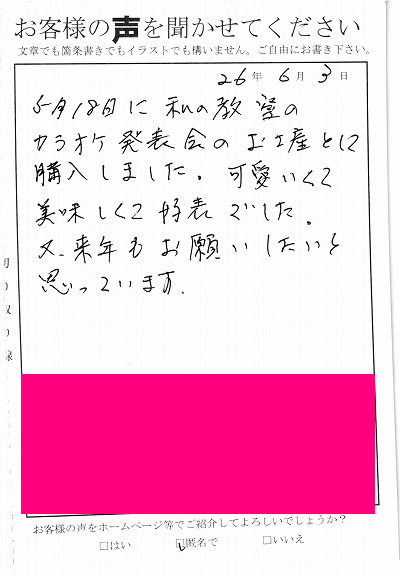 お客様の声を聞かせてください
文章でも箇条書きでもイラストでも構いません。ご自由にお書き下さい。
26年 6月 3日
5月18日に 私の教室の
カラオケ発表会のお土産とに
購入しました。可愛いくて
美味しくて好表でした。
又、来年もお願いしたいと
思っています.
切り取り線
お客様の声をホームページ等でご紹介してよろしいでしょうか？
□はい □匿名で □いいえ